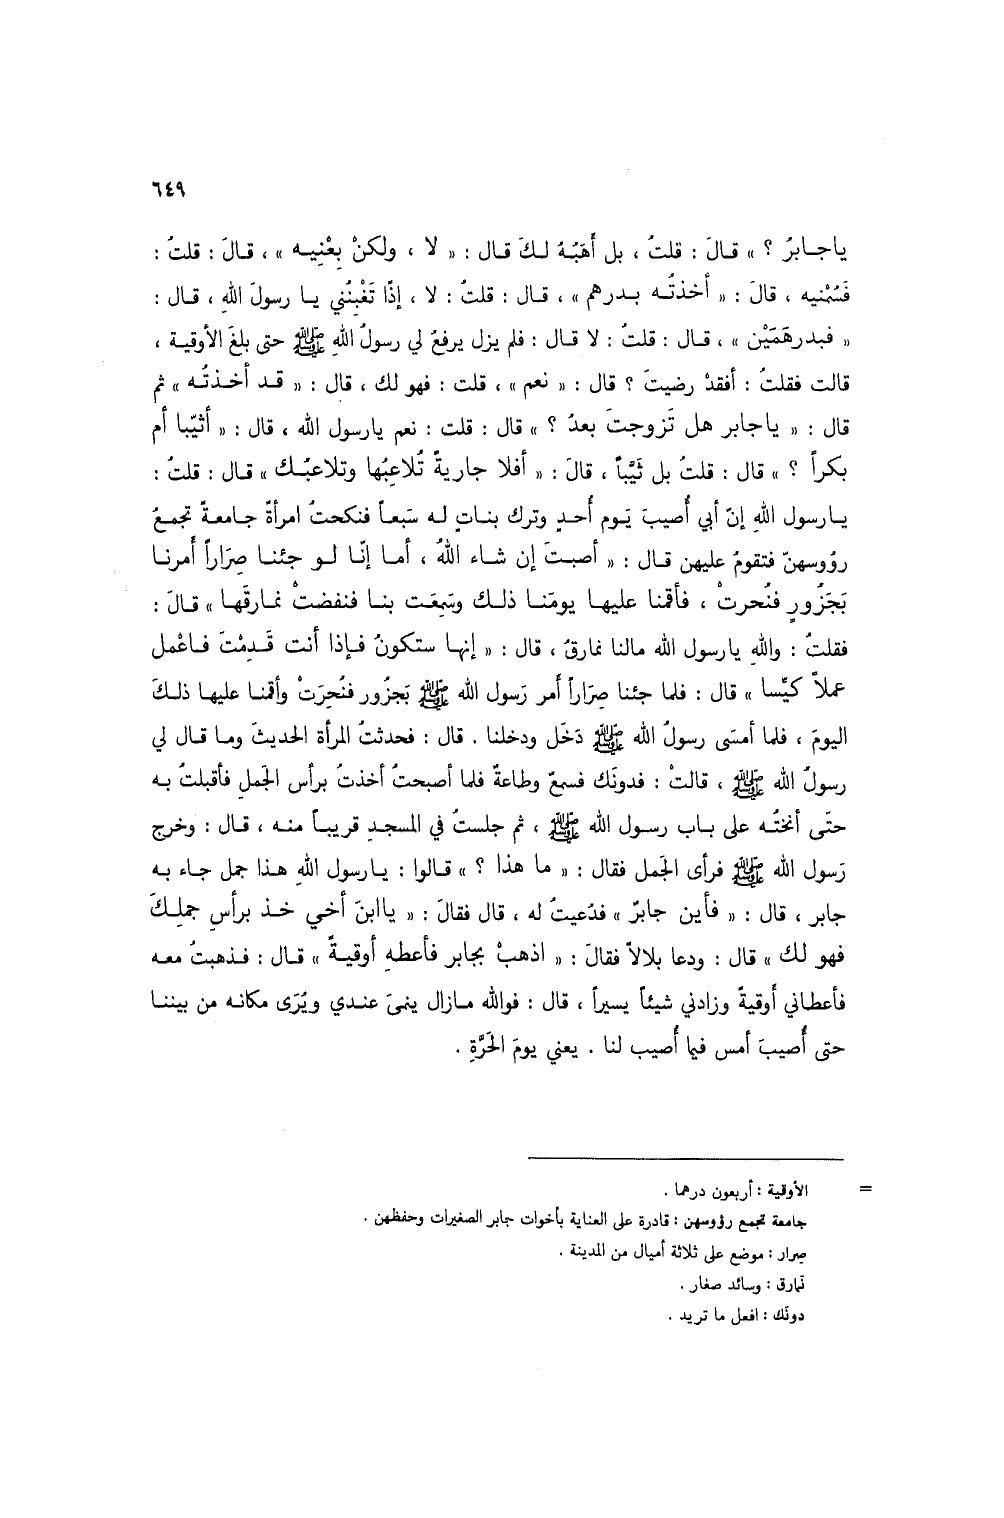 ٦٤٩
ياجابرُ ؟ » قالَ : قلتُ ، بل أَهَبُهُ لكَ قال : « لا ، ولكنْ بِعْنِيه » ، قالَ : قلتُ :
فَسُمْنيه ، قالَ : « أخذتُه بدرهم » ، قال : قلتُ : لا ، إذًا تَغْبِنُني يا رسولَ اللهِ ، قال :
« فبدرهَمَيْن » ، قال : قلتُ : لا قال : فلم يزل يرفعُ لي رسولُ اللهِ ﷺ حتى بلغَ الأوقية ،
قالت فقلتُ : أفقدْ رضيتَ ؟ قال : « نعم » ، قلت : فهو لك ، قال : « قد أخذتُه » ثم
قال : « ياجابر هل تَزوجتَ بعدُ ؟ » قال : قلت : نعم يارسول الله ، قال : « أثيّبا أم
بكراً ؟ » قال : قلتُ بل ثَيّباً ، قالَ : « أفلا جاريةً تُلاعِبُها وتلاعبُك » قال : قلتُ :
يارسول اللهِ إنّ أبي أُصيبَ يَوم أُحدٍ وترك بناتٍ له سَبعاً فنكحتُ امرأةً جامعةً تجمعُ
رؤوسهنّ فتقومُ عليهن قال : « أصبتَ إن شاء اللهُ ، أما إنّا لو جئنا صِرَاراً أمرنا
بَجَزُورٍ فنُحرتْ ، فأقمنا عليها يومَنا ذلك وسَمِعَت بنا فنفضتْ نمارقَها » قالَ :
فقلتُ : واللهِ يارسول الله مالنا نمارقُ ، قال : « إنها ستكونُ فإذا أنت قَدِمْتَ فاعْمل
عملاً كيّسا » قال : فلما جئنا صِرَاراً أمر رَسول الله ﷺ بَجزُور فنُحِرَتْ وأقمنا عليها ذلكَ
اليومَ ، فلما أمسَى رسولُ الله ﷺ دَخَل ودخلنا . قال : فحدثتُ المرأة الحديثَ وما قال لي
رسولُ الله ﷺ ، قالتْ : فدونَك فسمعٌ وطاعةٌ فلما أصبحتُ أخذتُ برأس الجَملِ فأقبلتُ به
حتّى أنختُه على باب رسول الله ﷺ ، ثم جلستُ في المسجدِ قريباً منه ، قال : وخرج
رَسول الله ﷺ فرأى الجَمل فقال : « ما هذا ؟ » قالوا : يارسول اللهِ هذا جمل جاء به
جابر ، قال : « فأين جابرٌ » فدُعيتُ له ، قال فقالَ : « ياابنَ أخي خذ برأسِ جملِكَ
فهو لك » قال : ودعا بلالاً فقالَ : « اذهبْ بجابر فأعطهِ أوقيةً » قال : فذهبتُ معه
فأعطاني أوقيةً وزادني شيئاً يسيراً ، قال : فوالله مازال ينمىَ عندي ويُرَى مكانه من بيننا
حتى أُصيبَ أمس فيما أُصيب لنا . يعني يومَ الحَرَّةِ .
= الأوقية : أربعون درهما .
جامعة تجمع رؤوسهن : قادرة على العناية بأخوات جابر الصغيرات وحفظهن .
صِرار : موضع على ثلاثة أميال من المدينة .
نمارق : وسائد صغار .
دونَك : افعل ما تريد .